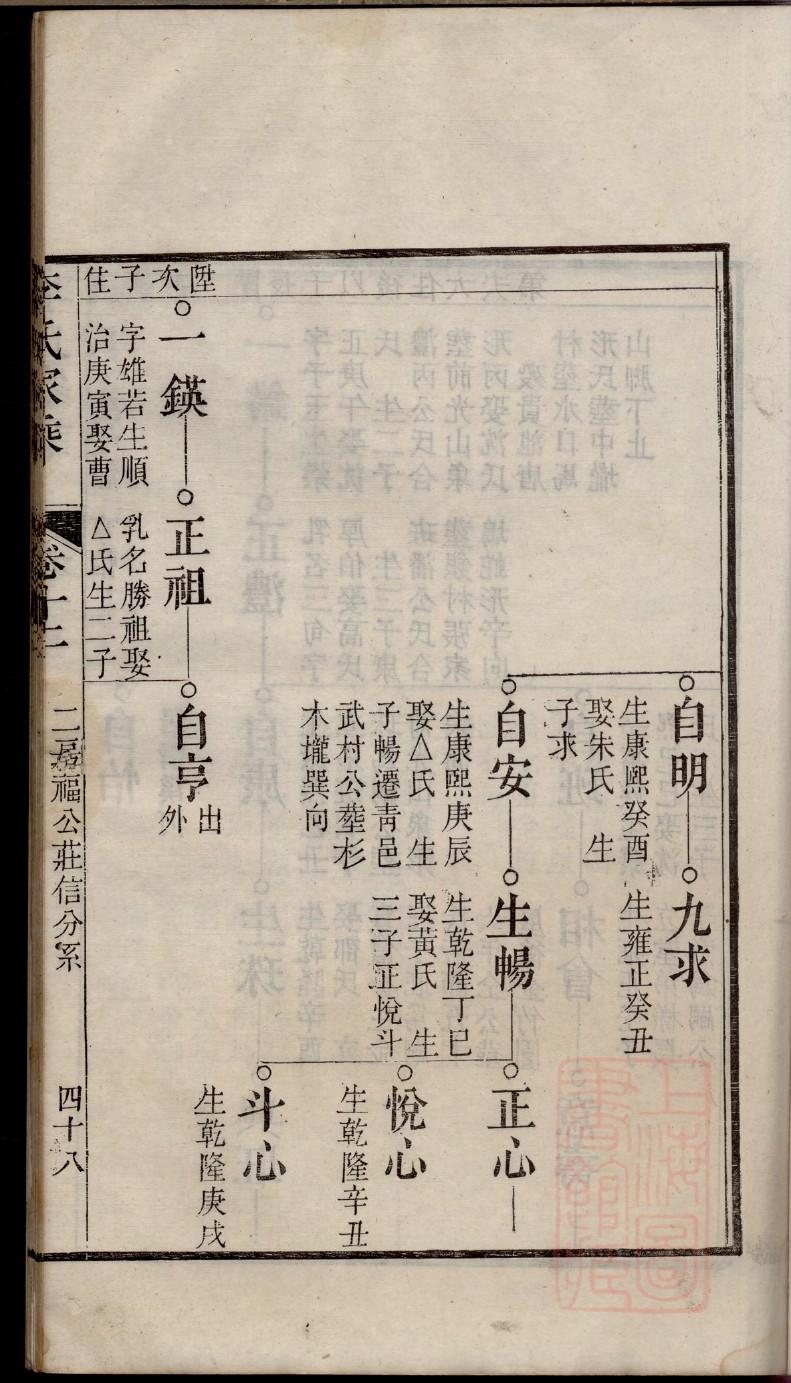 自明
生康熙癸酉
娶朱氏 生
子求
九求
生雍正癸丑
自安
生康熙庚辰
娶△氏 生
子暢遷青邑
武村公塟杉
木壠巽向
生暢
生乾隆丁巳
娶黃氏 生
三子正悅斗
正心
悅心
生乾隆辛丑
斗心
生乾隆庚戌
陞次子住
一鍈
字雄若生順
治庚寅娶曹
正祖
乳名勝祖娶
△氏生二子
自亨
出
外
李氏家乘
卷十二
二房福公莊信分系
四十八
上海圖書館藏